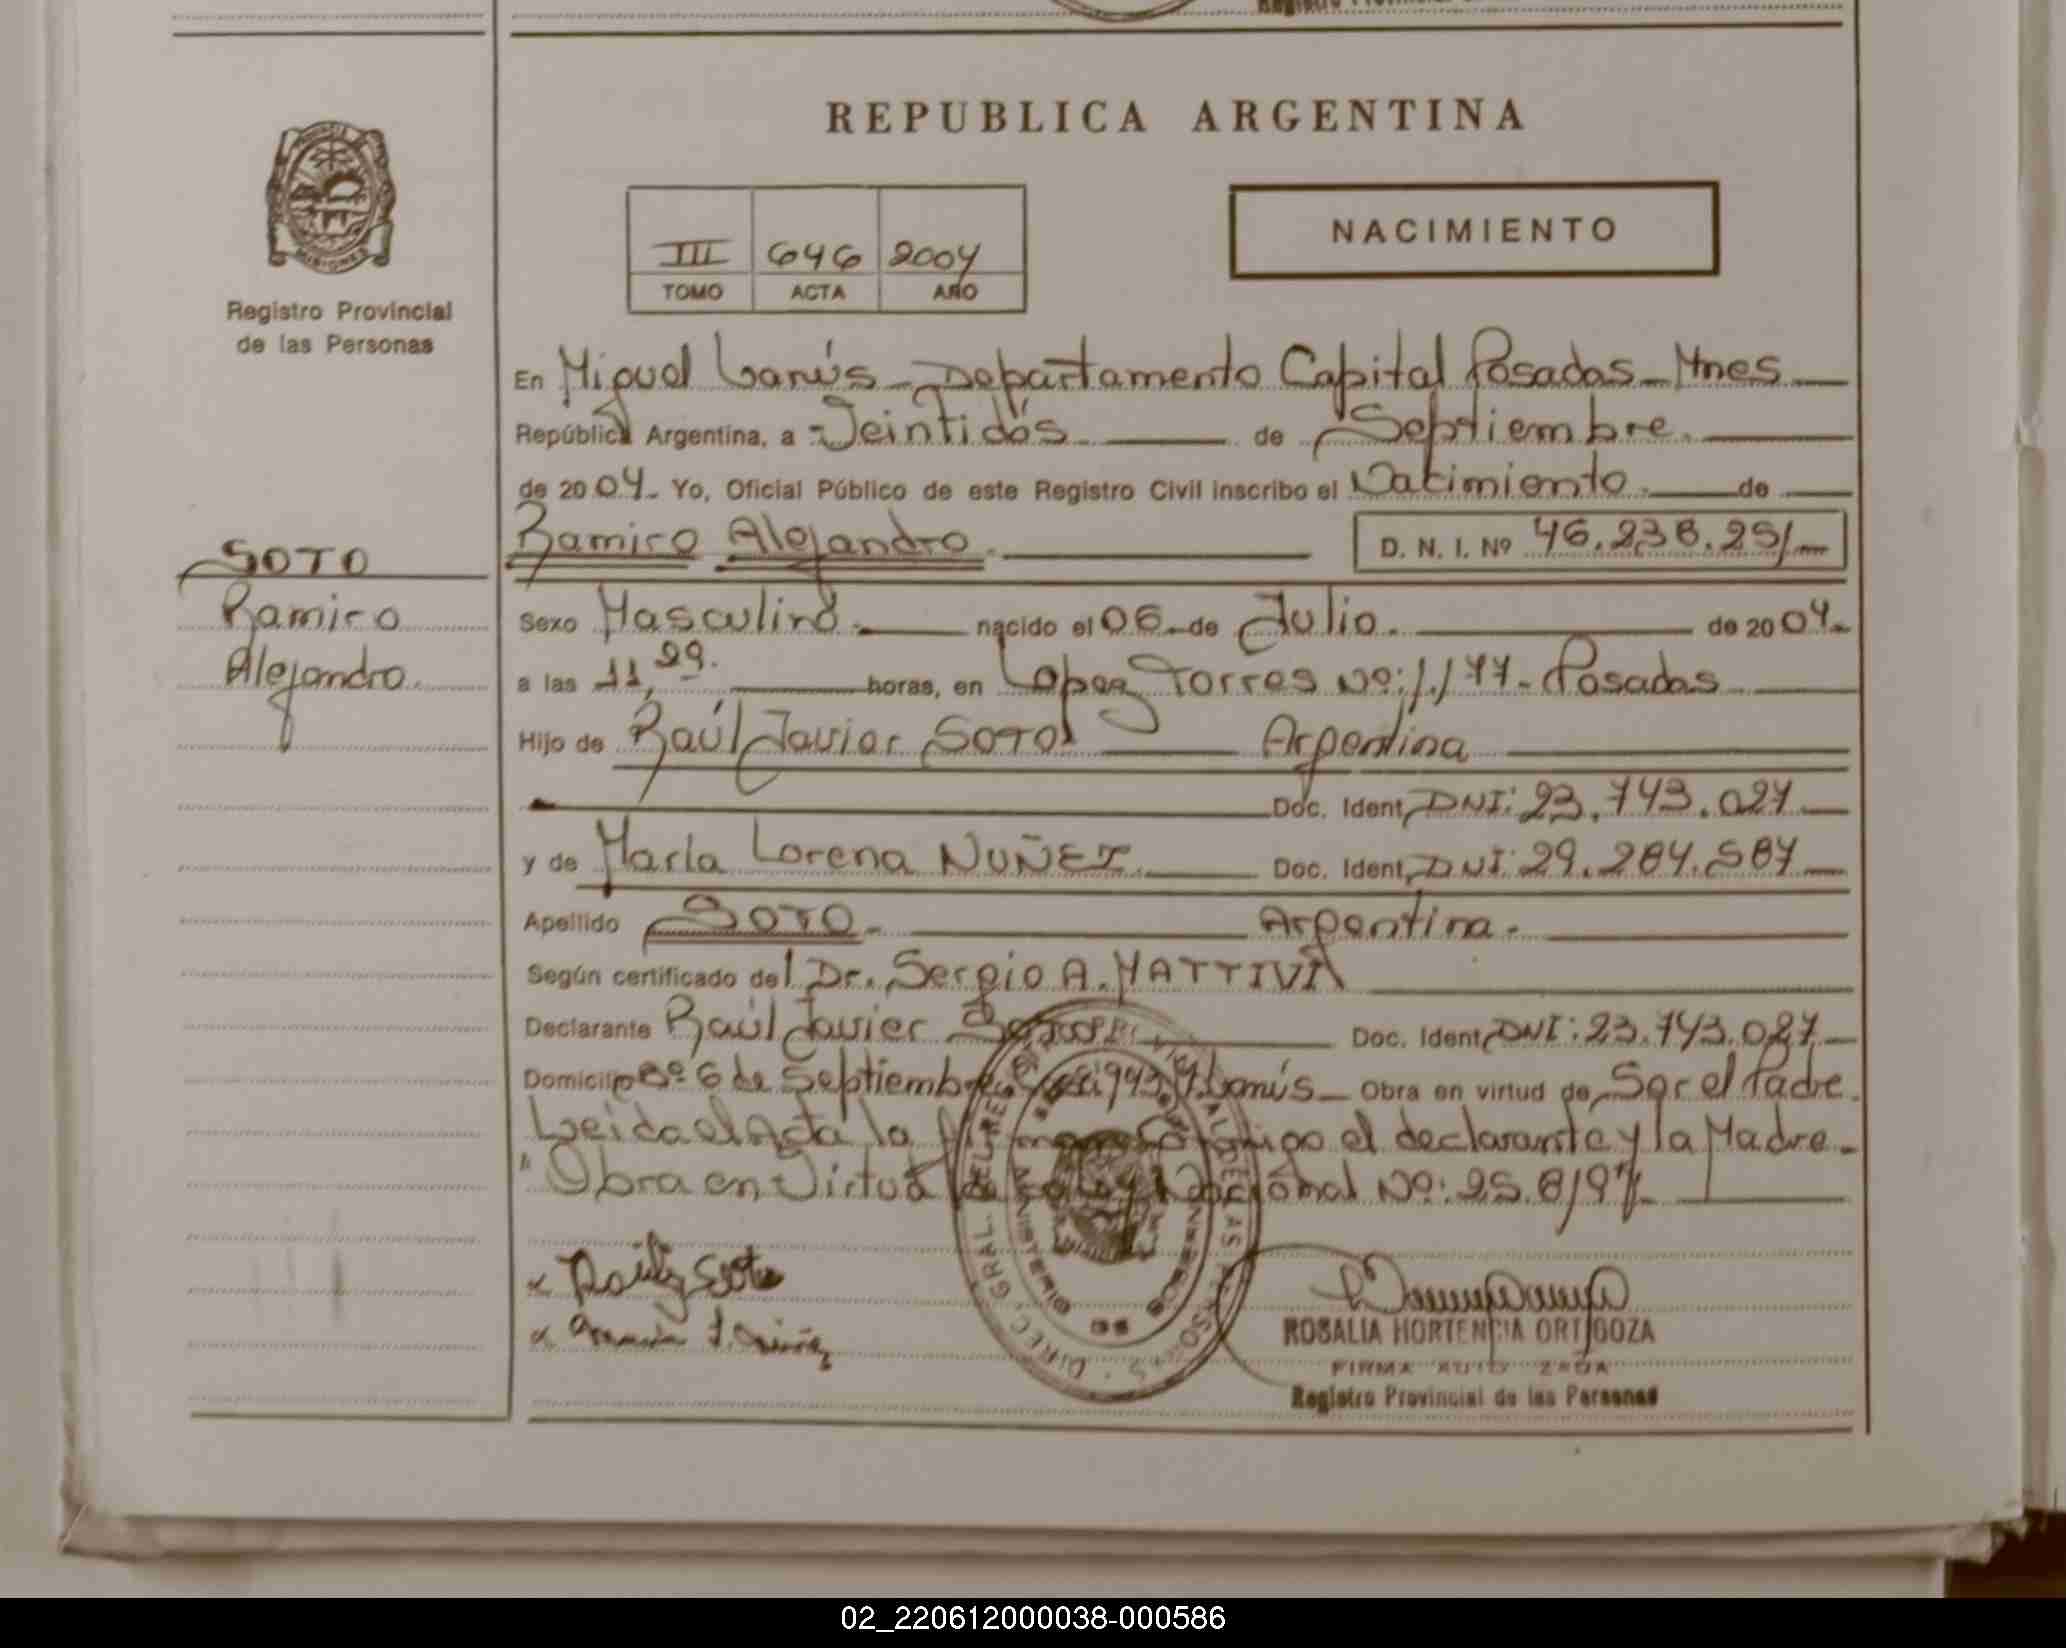 REPUBLICA ARGENTINA
NACIMIENTO
III 646 2004
TOMO ACTA AÑO
MISIONES
Registro Provincial
de las Personas
SOTO
Ramiro
Alejandro.
En Miguel Lanús - Departamento Capital Posadas - Mnes
República Argentina, a Veintidós de Septiembre.
de 2004. Yo, Oficial Público de este Registro Civil inscribo el Nacimiento. de
Ramiro Alejandro. D. N. I. Nº 46.238.251
Sexo Masculino. nacido el 06 de Julio. de 2004.
a las 11,29. horas, en Lopez Torres Nº: 1.177 - Posadas
Hijo de Raúl Javier SOTO Argentina
Doc. Ident. DNI: 23.743.027
y de María Lorena NUÑEZ. Doc. Ident. DNI: 29.284.587
Apellido SOTO. Argentina.
Según certificado del Dr. Sergio A. MATTIVI
Declarante Raúl Javier Doc. Ident. DNI: 23.743.027
Domicilio Bº 6 de Septiembre Lanús - Obra en virtud de Ser el Padre.
Leida el Acta la el declarante y la Madre.
"Obra en Virtud de la Ley Nacional Nº: 25.819"
ROSALIA HORTENCIA ORTIGOZA
FIRMA AUTORIZADA
Registro Provincial de las Personas
02_220612000038-000586